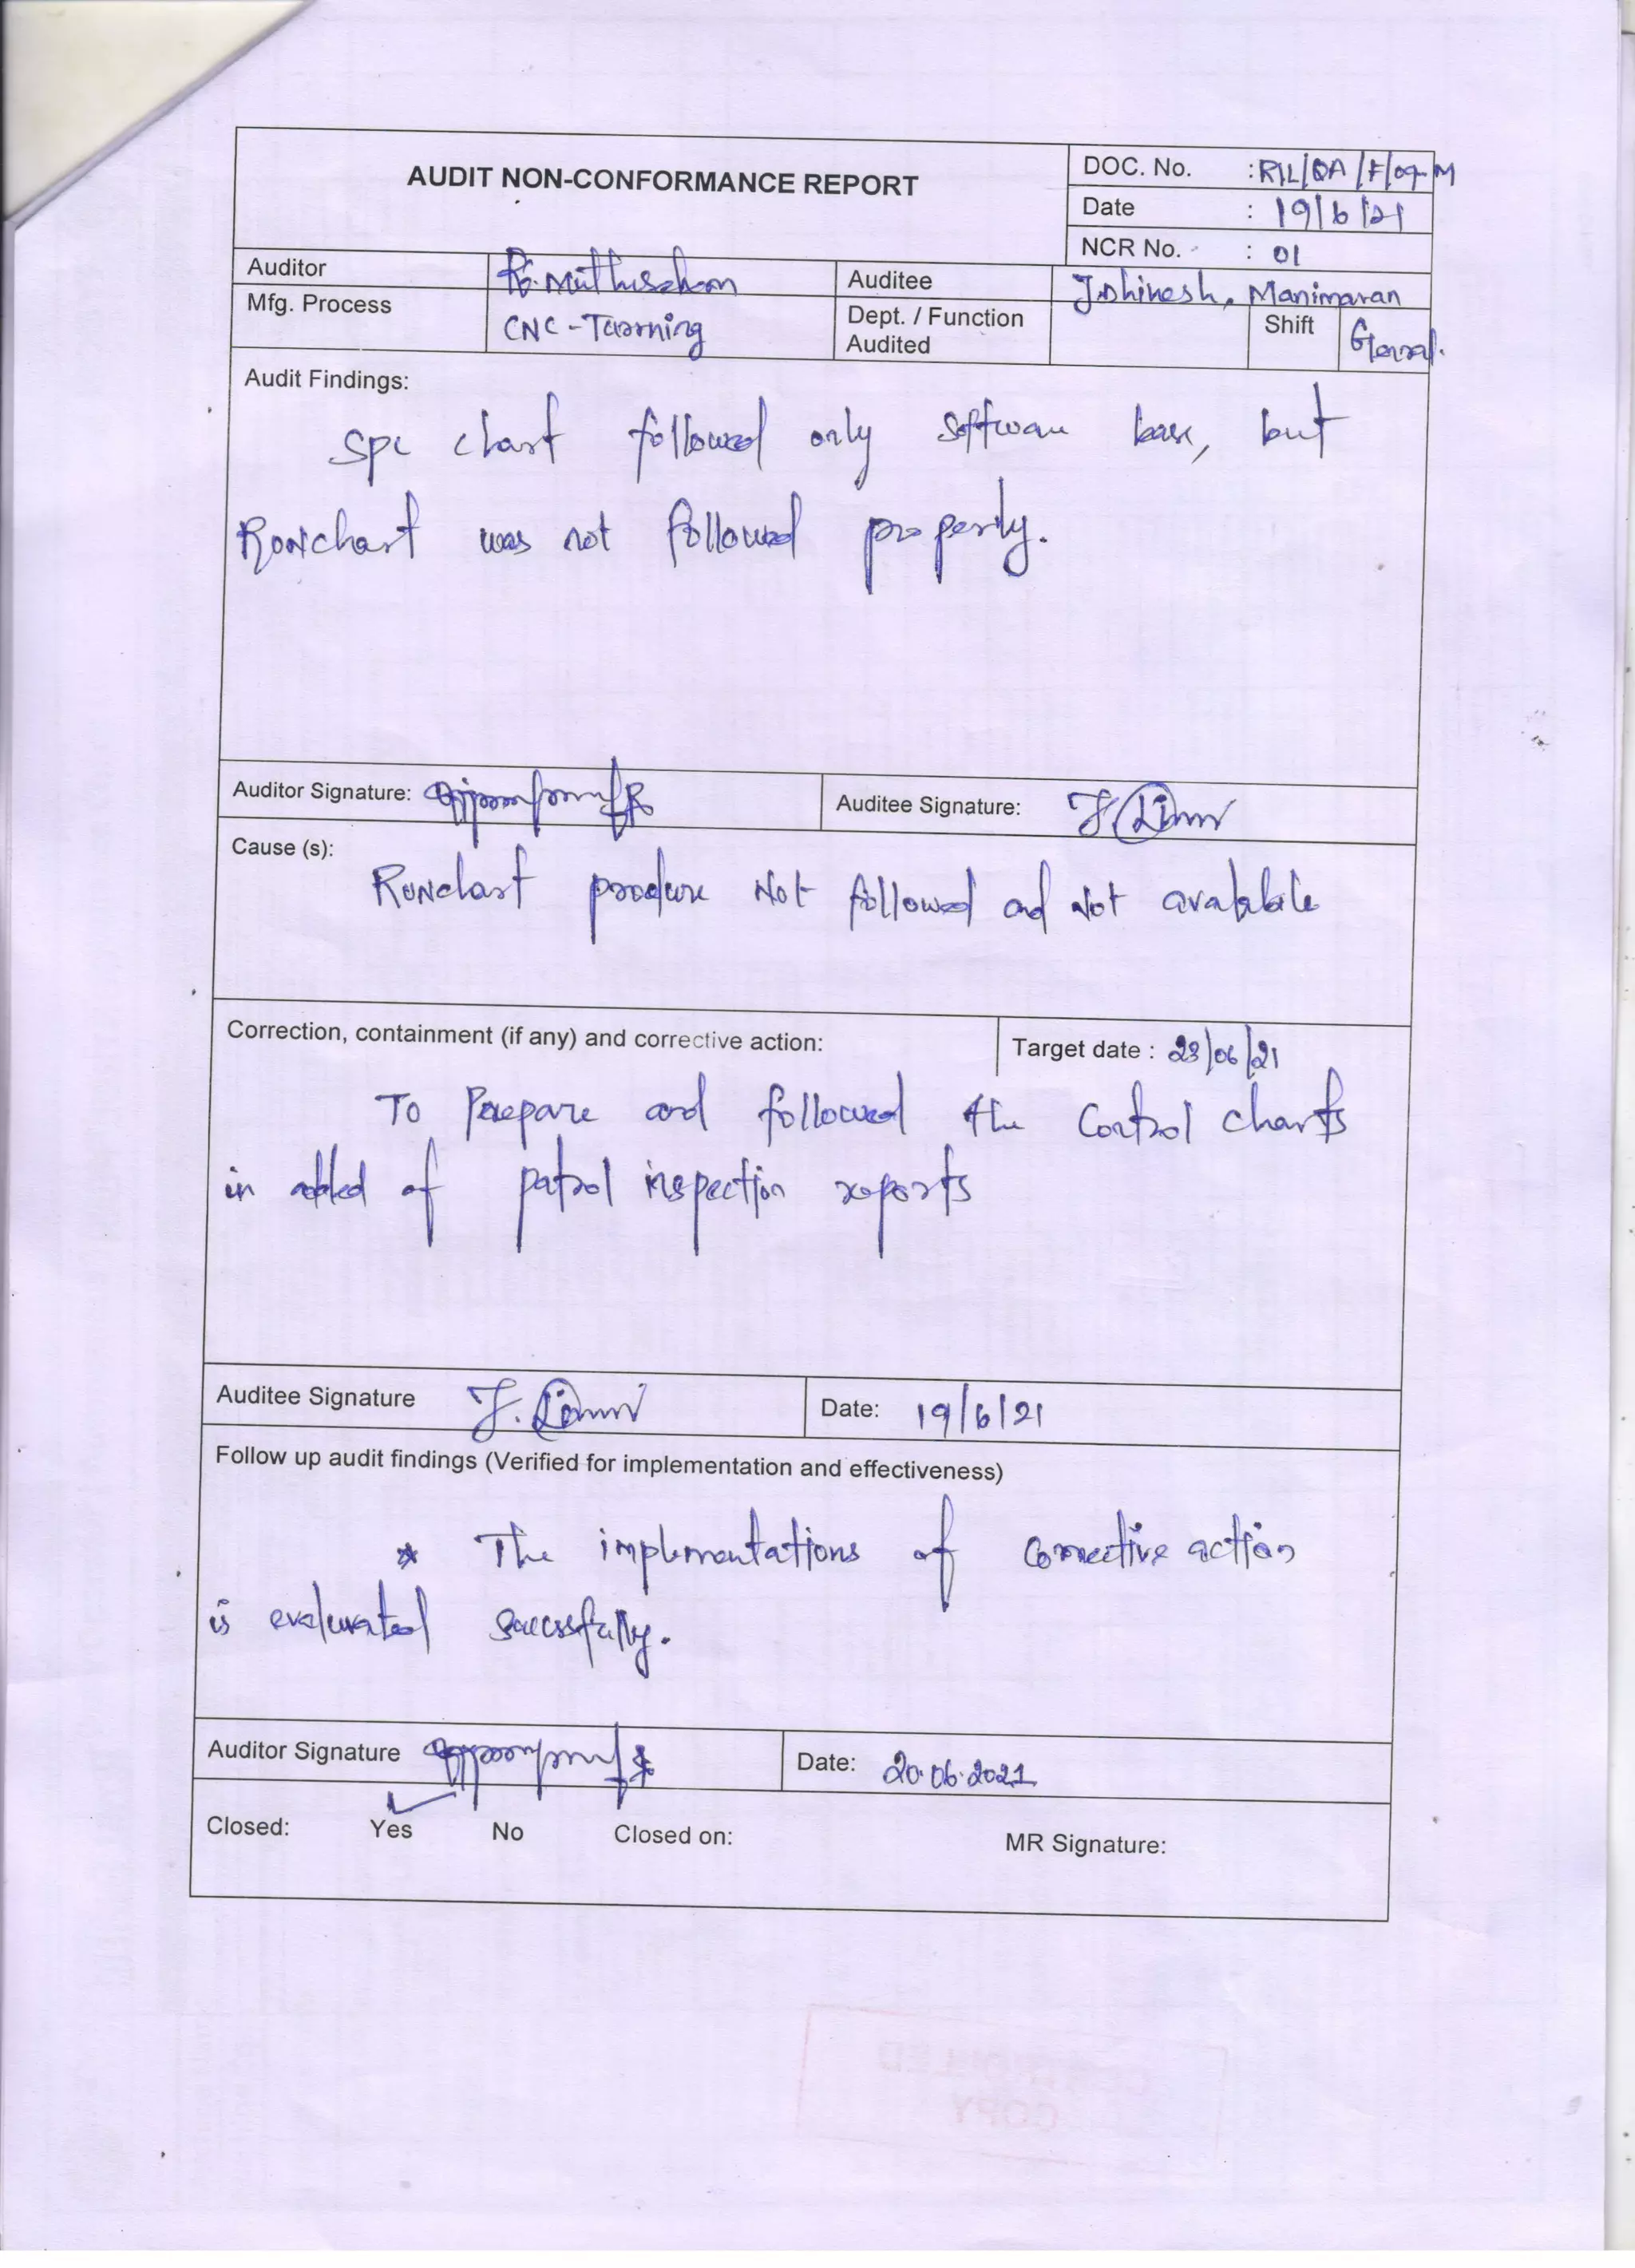 AUDIT NON-CONFORMANCE REPORT
DOC. No. :RIL/QA/F/09-M
Date : 19/6/21
NCR No. : 01
Auditor Auditee J.Dhinesh, Manimaran
Mfg. Process CNC-Turning Dept. / Function Audited Shift General.
Audit Findings:
SPC chart followed only software base, but
Runchart was not followed properly.
Auditor Signature: Auditee Signature:
Cause (s):
Runchart procedure Not followed and Not available
Correction, containment (if any) and corrective action: Target date : 23/06/21
To Prepare and followed the Control charts
in added of patrol inspection reports
Auditee Signature Date: 19/6/21
Follow up audit findings (Verified for implementation and effectiveness)
* The implementations of corrective action
is evaluated successfully.
Auditor Signature Date: 20.06.2021
Closed: Yes No Closed on: MR Signature: